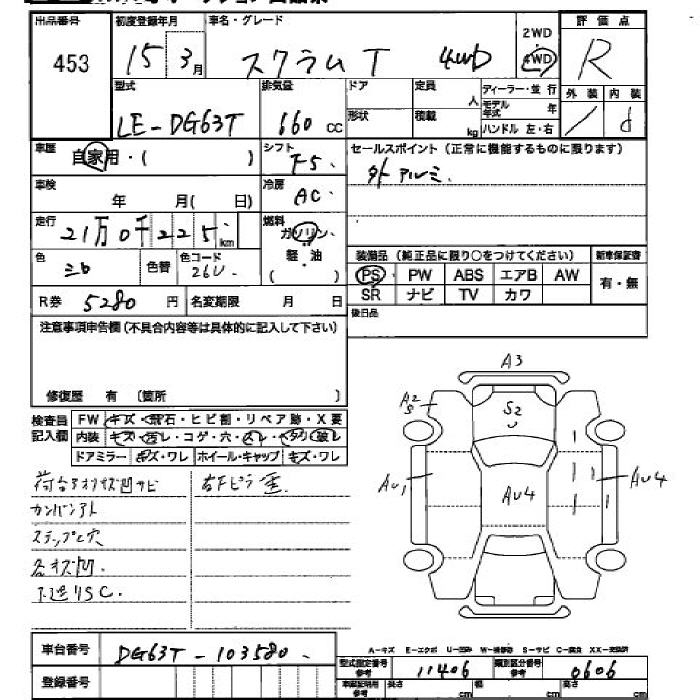 出品番号 初度登録年月 車名・グレード 2WD 評価点
453 15 3月 スクラムT 4WD 4WD R
型式 排気量 ドア 定員 人 ディーラー・並行 外装 内装
形状 積載 kg モデル年式 年
LE-DG63T 660 CC ハンドル 左・右 / d
車歴 自家用・( ) シフト F5 セールスポイント(正常に機能するものに限ります)
外アルミ.
車検 年 月( 日) 冷房 AC
走行 21万0千225km 燃料 ガソリン・軽・油 ( )
色 色替 色コード 26U 装備品(純正品に限り○をつけてください) 新車保証書
PS PW ABS エアB AW 有・無
SR ナビ TV カワ
R券 5280 円 名変期限 月 日 後日品
注意事項申告欄(不具合内容等は具体的に記入して下さい)
修復歴 有 〔箇所 〕
検査員記入欄 FW キズ・飛石・ヒビ割・リペア跡・X要
内装 キズ・汚レ・コゲ・穴・
ドアミラー キズ・ワレ ホイール・キャップ キズ・ワレ
カンバンアト
A3
A2
S
S2
AU1
AU4
AU4
A-キズ E-エクボ U-凹み W-補修跡 S-サビ C-腐食 XX-交換済
車台番号 DG63T-103580
登録番号
型式指定番号 参考 11406 類別区分番号 参考 0606
車庫証明用 参考 長さ cm 幅 cm 高さ cm